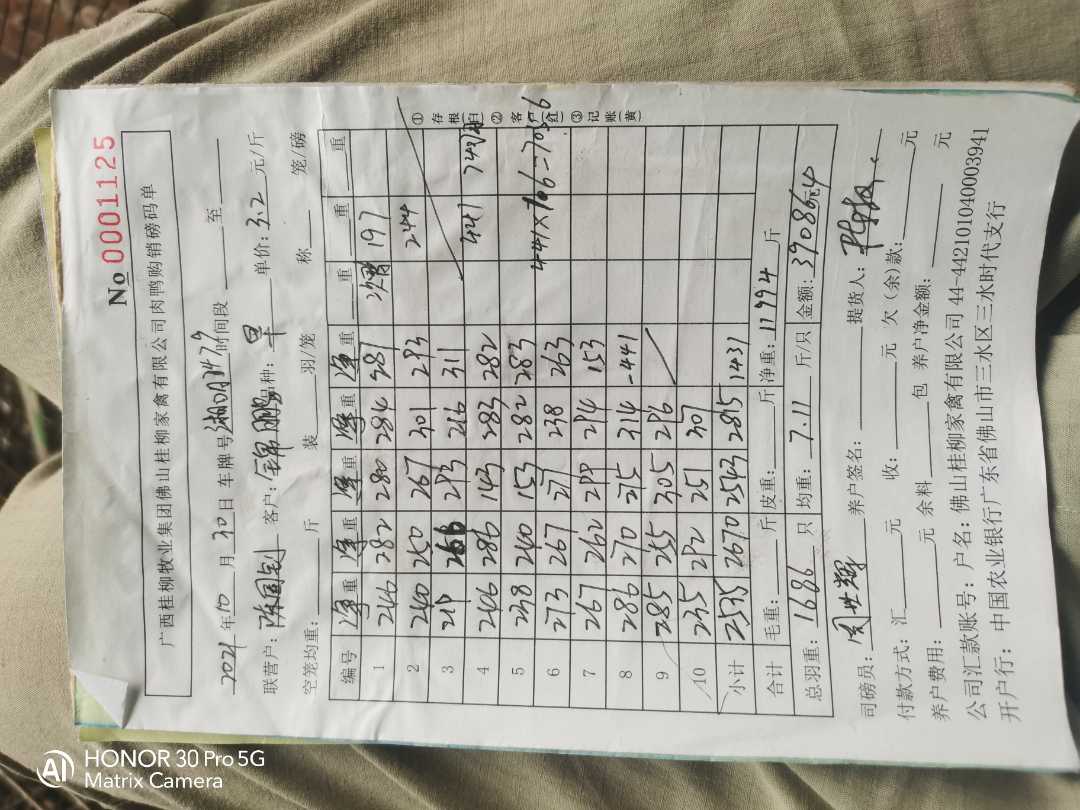 No 0001125
广西桂柳牧业集团佛山桂柳家禽有限公司肉鸭购销磅码单
2021年10月30日 车牌号 时间段 至
联营户: 陈国钊 客户: 锦鹏 品种: 单价: 3.2 元/斤
空笼均重: 斤 装 羽/笼 称 笼/磅
编号 净重 净重 净重 净重 净重 重 重 重
1 246 282 280 284 287 197
2 240 250 267 301 293 244
3 219 266 293 216 311
4 246 286 143 283 282 441
5 238 240 153 282 283
6 273 267 277 238 263 441×1.6=705.6
7 267 262 299 294 153
8 286 270 275 314 -441
9 285 255 305 296
10 235 292 251 307
小计 2535 2670 2543 2815 1431
合计 毛重: 斤 皮重: 斤 净重: 11994 斤
总羽重: 1686 只 均重: 7.11 斤/只 金额: 39086.4元
司磅员: 周世辉 养户签名: 提货人:
付款方式: 汇 元 收: 元 欠(余)款: 元
养户费用: 元 余料 包 养户净金额: 元
公司汇款账号: 户名: 佛山桂柳家禽有限公司 44-442101040003941
开户行: 中国农业银行广东省佛山市三水区三水时代支行
①存根(白)②客户(红)③记账(黄)
HONOR 30 Pro 5G
Matrix Camera